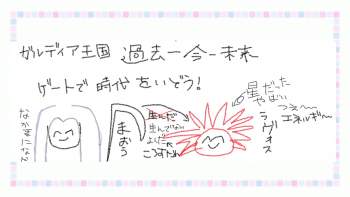 ガルディア王国 過去ー今ー未来
ゲートで時代をいどう！
なかまになる
まおう
生んだ
生んでない
よだ
ころすため
星だった
やばい
つえ〜〜
エネルギー
ラヴォス